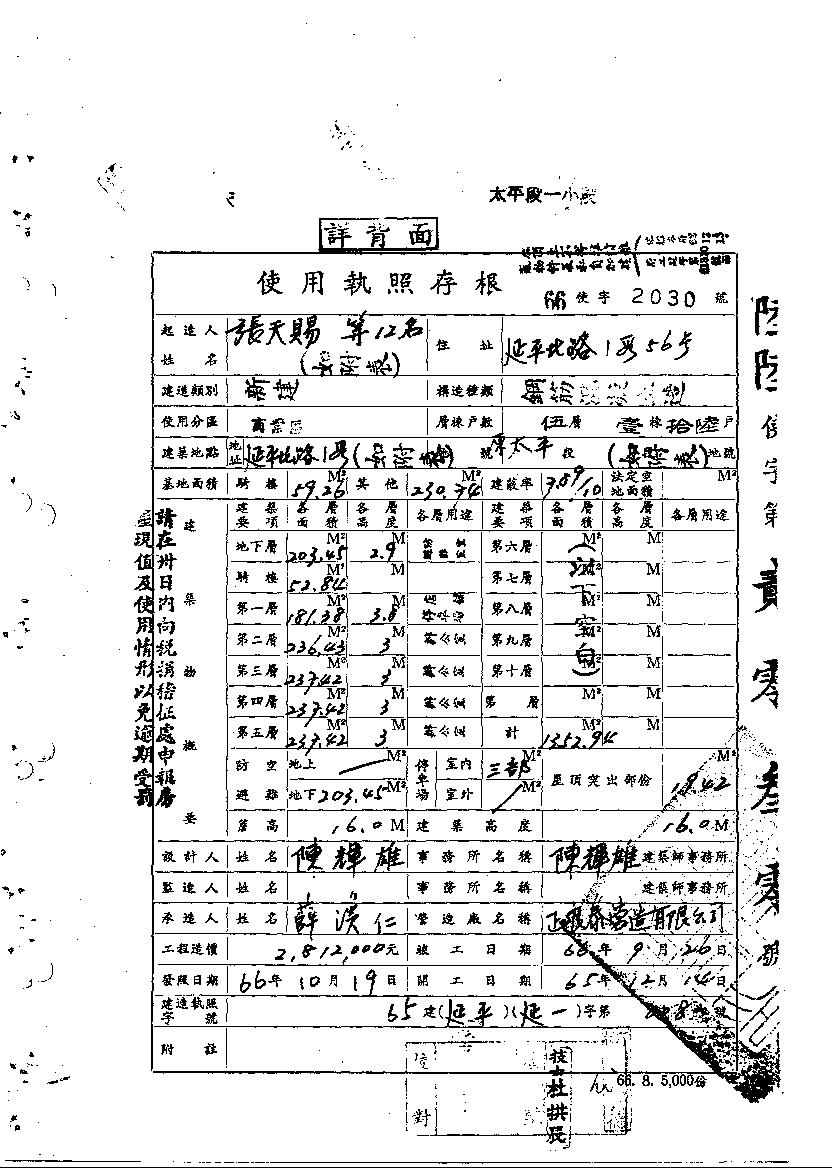 太平段一小段
詳背面
使用執照存根
66 使字 2030 號
起造人姓名 張天賜 等12名 (如附表) 住址 延平北路1段56号
建造類別 新建 構造種類 鋼筋
使用分區 商業區 層棟戶數 伍層 壹棟 拾陸戶
建築地點 地址 延平北路1 (如附表) 號 太平 段 (如附表) 地號
基地面積 騎樓 59.26 M² 其他 230.74 M² 建蔽率 7.89/10 法定空地面積 M²
建築要項 各層面積 各層高度 各層用途 建築要項 各層面積 各層高度 各層用途
地下層 203.45 M² 2.9 M 第六層 M² M
騎樓 52.84 M² M 第七層 M² M
第一層 181.38 M² 3.8 M 第八層 M² M
第二層 236.43 M² 3 M 第九層 M² M
第三層 237.42 M² 3 M 第十層 M² M
第四層 237.42 M² 3 M 第 層 M² M
第五層 237.42 M² 3 M 計 1352.94 M² M
(以下空白)
建築物概要
防空避難 地上 M² 停車場 室內 M² 屋頂突出部份 M²
地下 203.45 M² 室外 M² 19.42
簷高 16.0 M 建築高度 16.0 M
設計人 姓名 陳輝雄 事務所名稱 陳輝雄 建築師事務所
監造人 姓名 事務所名稱 建築師事務所
承造人 姓名 薛漢仁 營造廠名稱 營造有限公司
工程造價 2,812,000元 竣工日期 66年9月26日
發照日期 66年10月19日 開工日期 65年12月14日
建造執照字號 65建(延平)(延一)字第 號
附註
66. 8. 5,000份
校對
技士杜拱辰
請在卅日內向稅捐稽征處申報房
屋現值及使用情形以免逾期受罰
陸陸使字第貳零叁零號